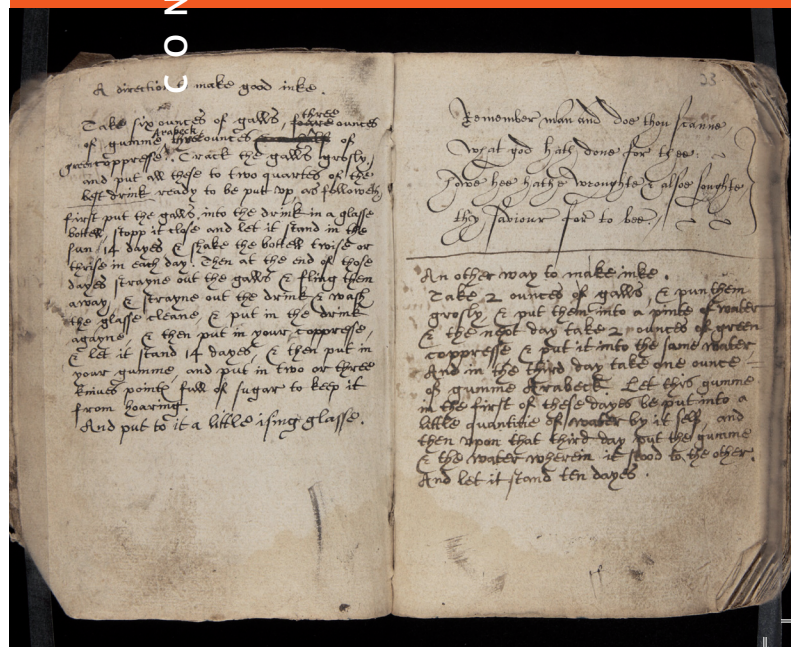 CON
A direction to make good inke.
Take six ounces of galls, three foure ounces
of gumme Arabeck three ounces of
green coppresse. Crack the galls grosly,
and put all these to two quartes of the
best drink ready to be put up, as followeth
first put the galls into the drink in a glasse
bottell, stopp it close and let it stand in the
sun 14 dayes & shake the bottell twise or
thrise in each day. Then at the end of those
dayes strayne out the galls & fling them
away, & strayne out the drink & wash
the glasse cleane, & put in the drink
agayne, & then put in your coppresse,
& let it stand 14 dayes, & then put in
your gumme, and put in two or three
knives points full of sugar to keep it
from hoaring.
And put to it a little ising glasse.
23
Remember man and doe thou scanne
What god hath done for thee
Howe hee hathe wroughte & alsoe soughte
thy saviour for to bee.
An other way to make inke.
Take 2 ounces of galls, & pun them
grosly, & put them into a pinte of water
& the next day take 2 ounces of green
coppresse & put it into the same water,
And in the third day take one ounce
of gumme Arabeck. Let this gumme
in the first of these dayes be put into a
little quantitie of water by it self, and
then upon that third day put the gumme
& the water wherein it stood to the other.
And let it stand ten dayes.